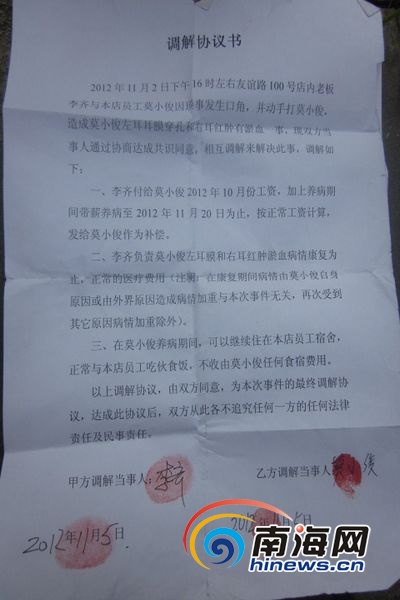 调解协议书
2012年11月2日下午16时左右友谊路100号店内老板
李齐与本店员工莫小俊因琐事发生口角，并动手打莫小俊，
造成莫小俊左耳耳膜穿孔和右耳红肿有淤血一事，现双方当
事人通过协商达成共识同意，相互调解来解决此事，调解如
下：
一、李齐付给莫小俊2012年10月份工资，加上养病期
间带薪养病至2012年11月20日为止，按正常工资计算，
发给莫小俊作为补偿。
二、李齐负责莫小俊左耳膜和右耳红肿淤血病情康复为
止，正常的医疗费用（注明：在康复期间病情由莫小俊自身
原因或由外界原因造成病情加重与本次事件无关，再次受到
其它原因病情加重除外）。
三、在莫小俊养病期间，可以继续住在本店员工宿舍，
正常与本店员工吃伙食饭，不收由莫小俊任何食宿费用。
以上调解协议，由双方同意，为本次事件的最终调解协
议，达成此协议后，双方从此各不追究任何一方的任何法律
责任及民事责任。
甲方调解当事人：李齐 乙方调解当事人：莫小俊
2012年11月5日. 2012年11月5日
南海网
hinews.cn